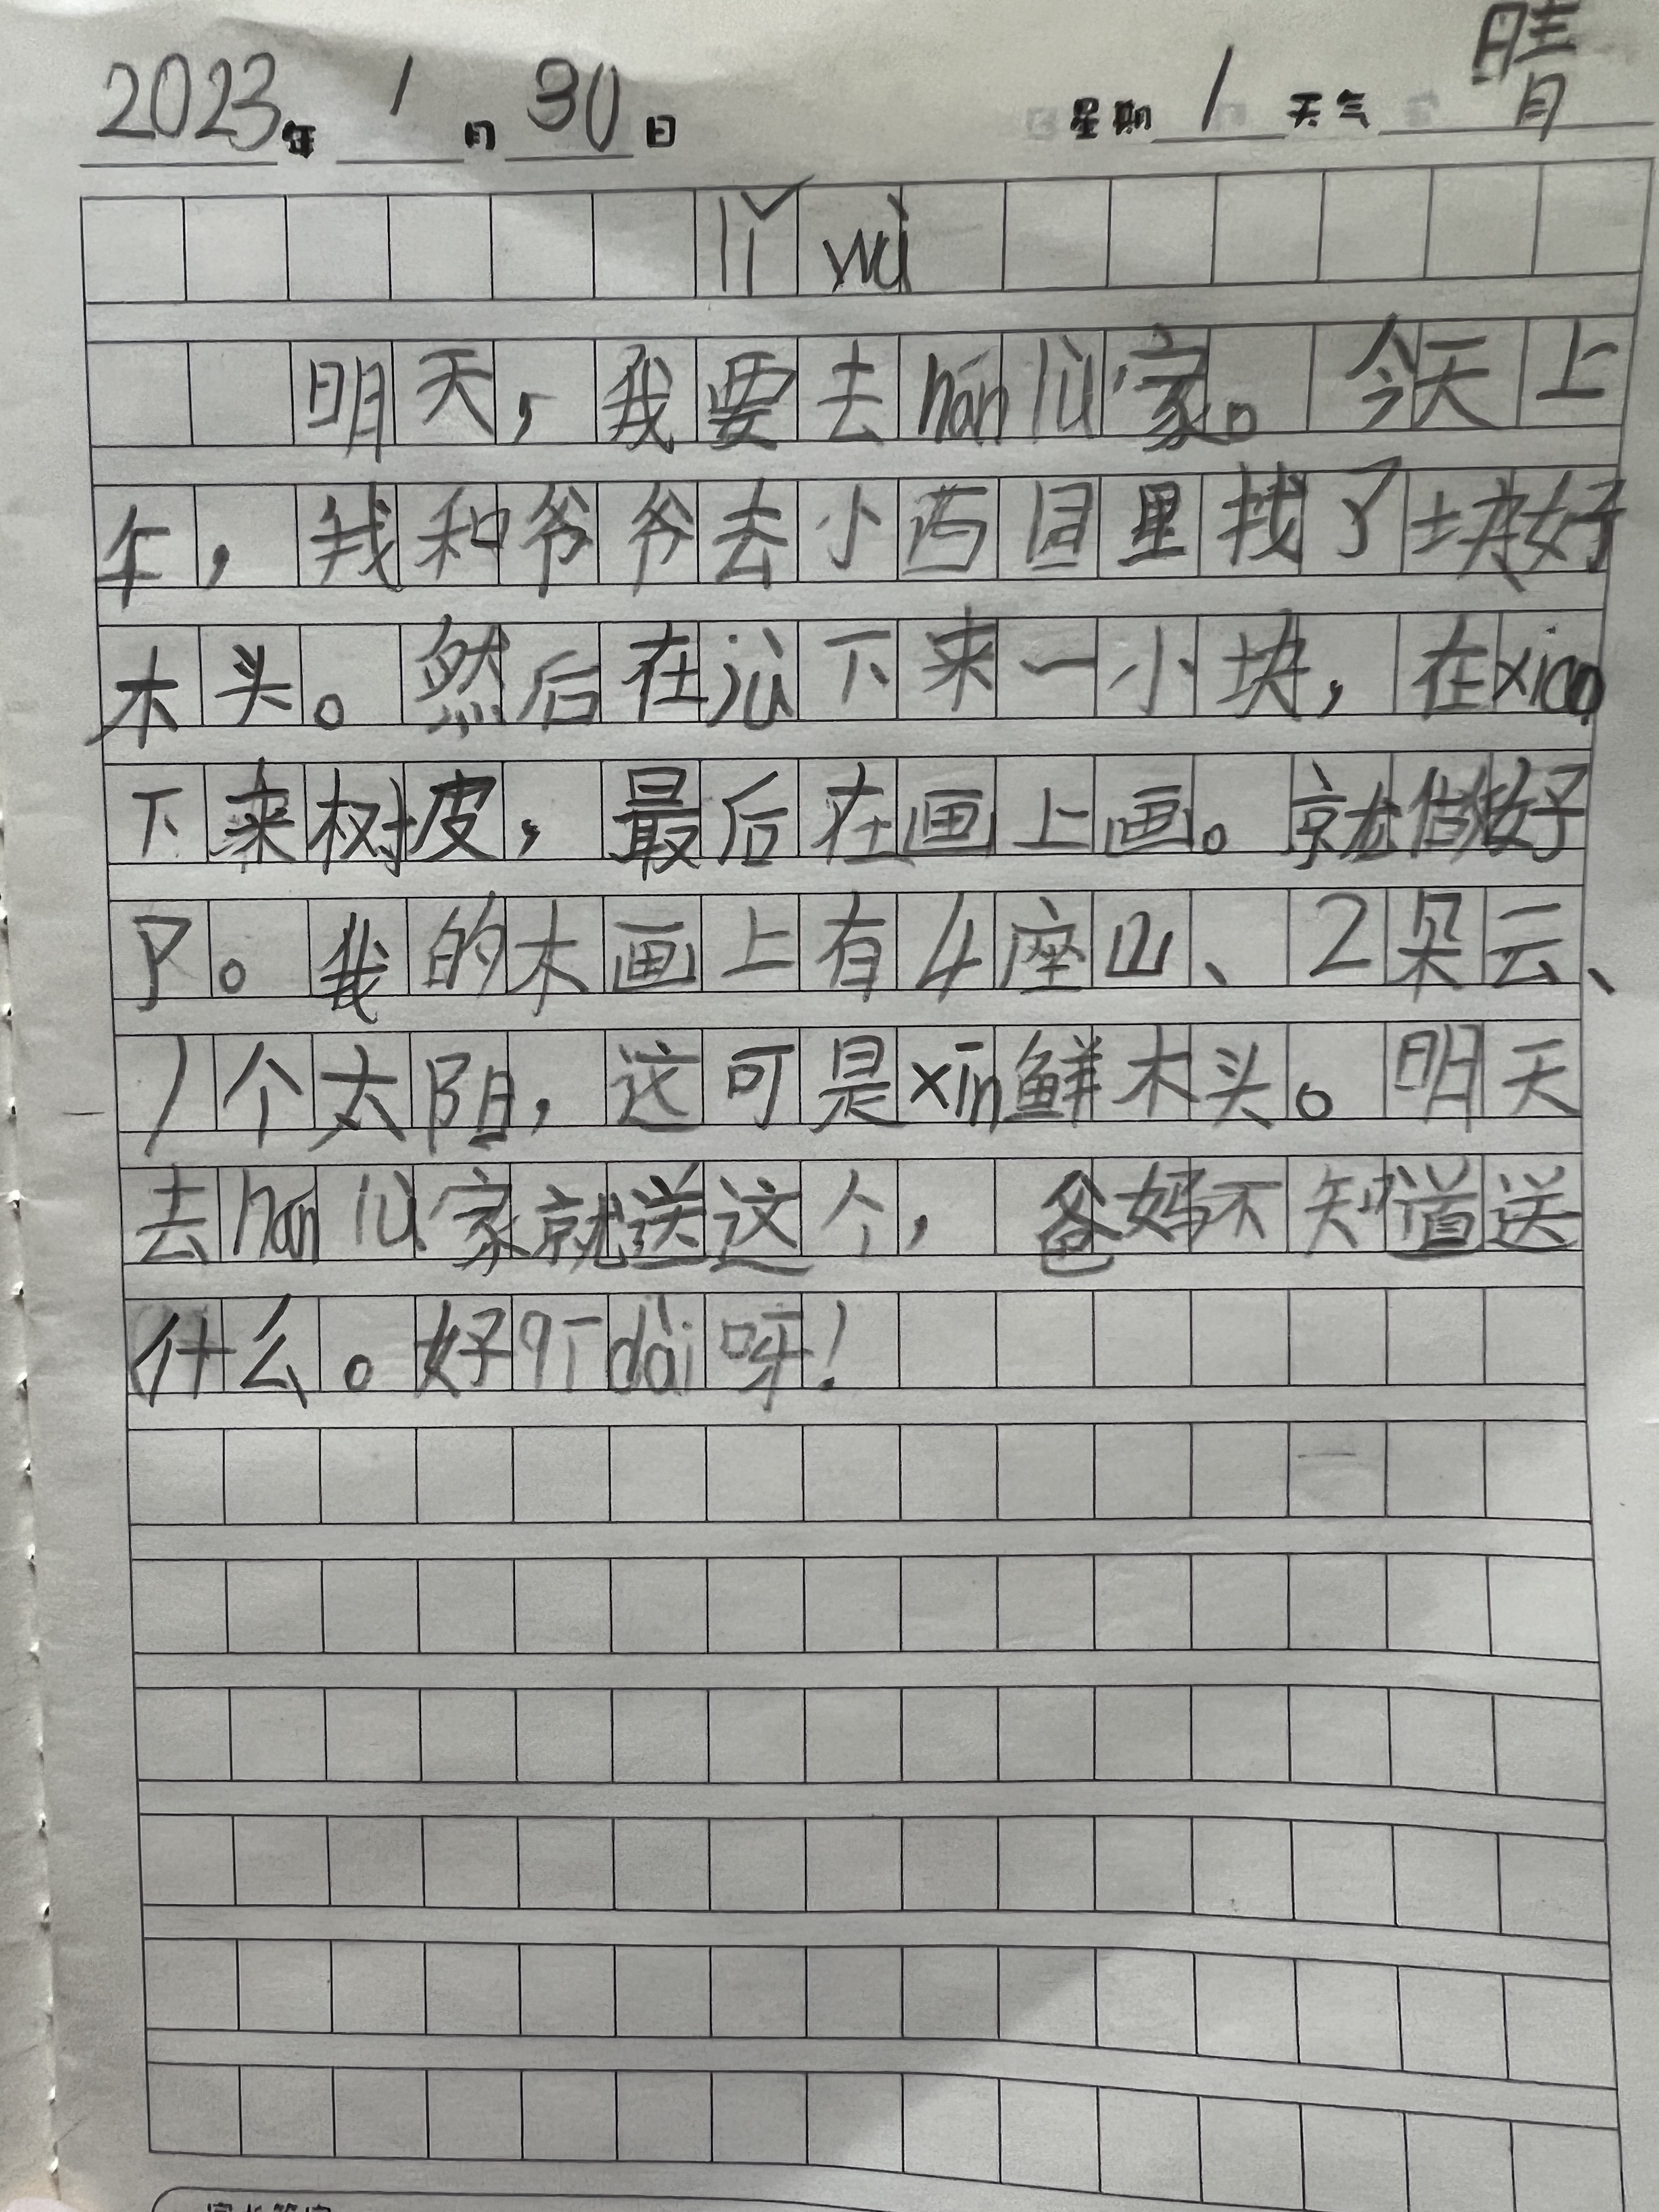 2023年 1月 30日 星期 1 天气 晴
lǐ wù
明天，我要去hán lù家。今天上
午，我和爷爷去小药园里找了块好
木头。然后在jù下来一小块，在xiao
下来树皮，最后在画上画。就做好
了。我的木画上有4座山、2朵云、
1个太阳，这可是xīn鲜木头。明天
去hán lù家就送这个，爸妈不知道送
什么。好qī dài呀！